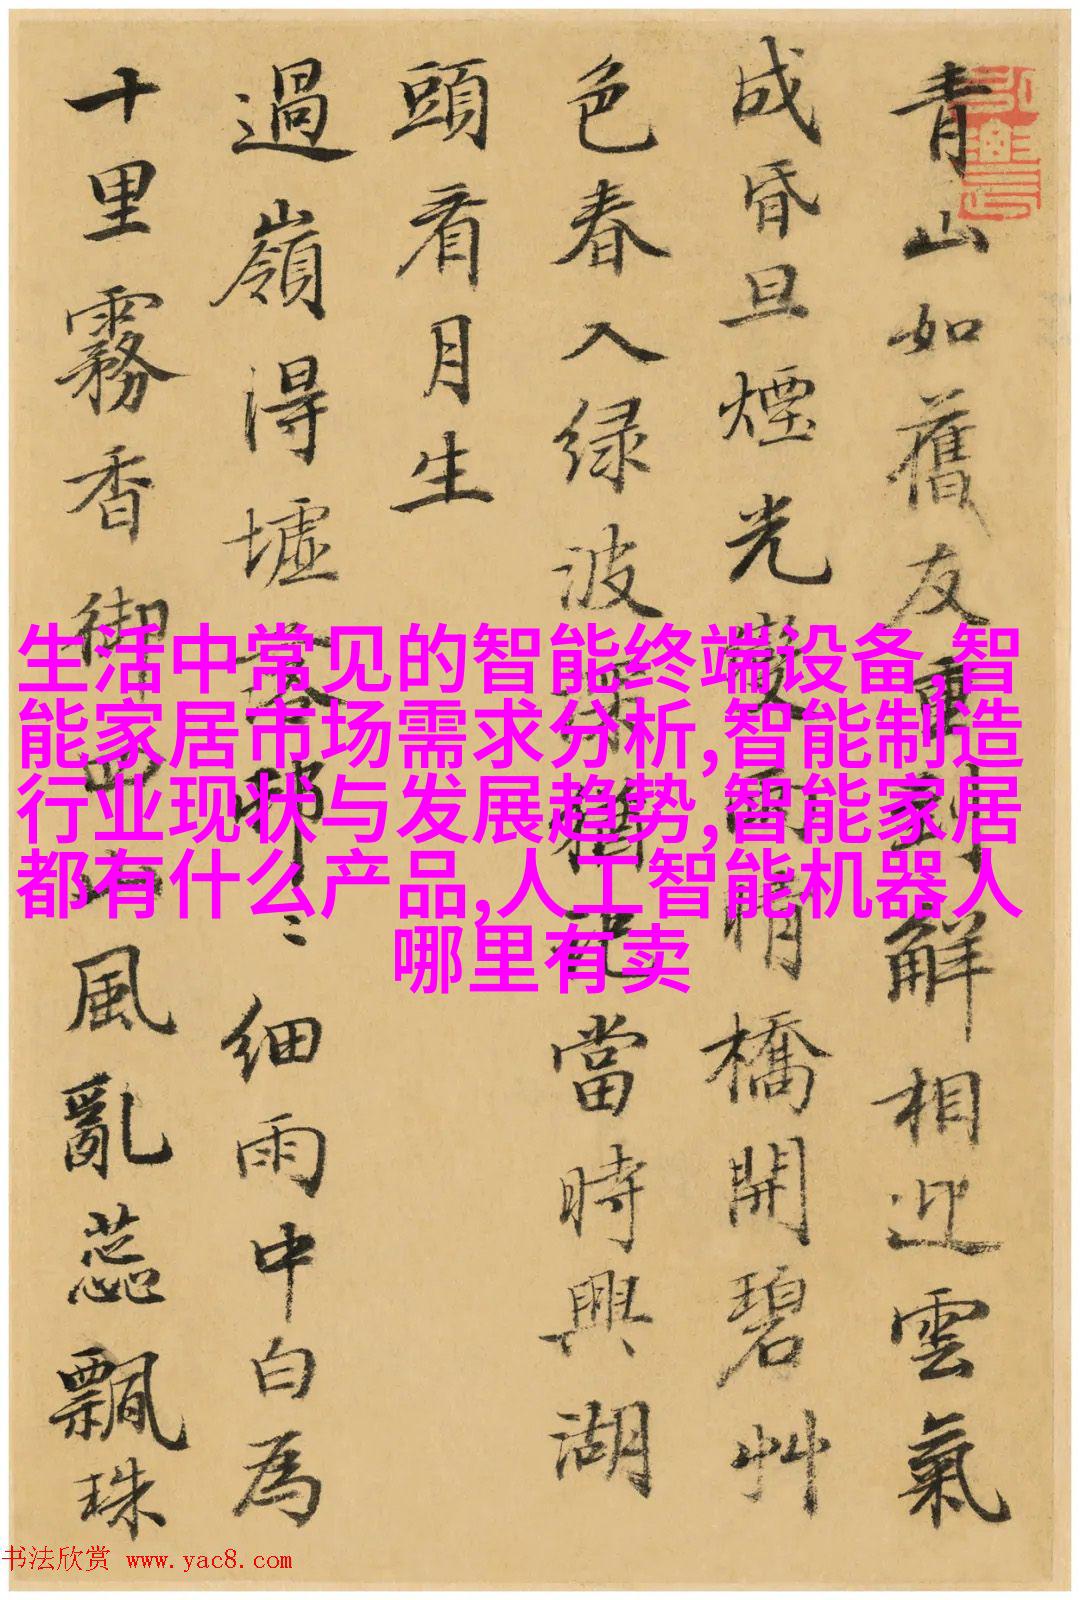 青山如舊友重到解相迎雲氣
成昏旦煙光變雨晴橋開碧艸
色春入绿波深猶記當時興湖
頭看月生
過嶺得墟落邨〻細雨中白為
十里霧香御四山風亂蕊飄珠
生活中常见的智能终端设备,智
能家居市场需求分析,智能制造
行业现状与发展趋势,智能家居
都有什么产品,人工智能机器人
哪里有卖
书法欣赏 www.yac8.com